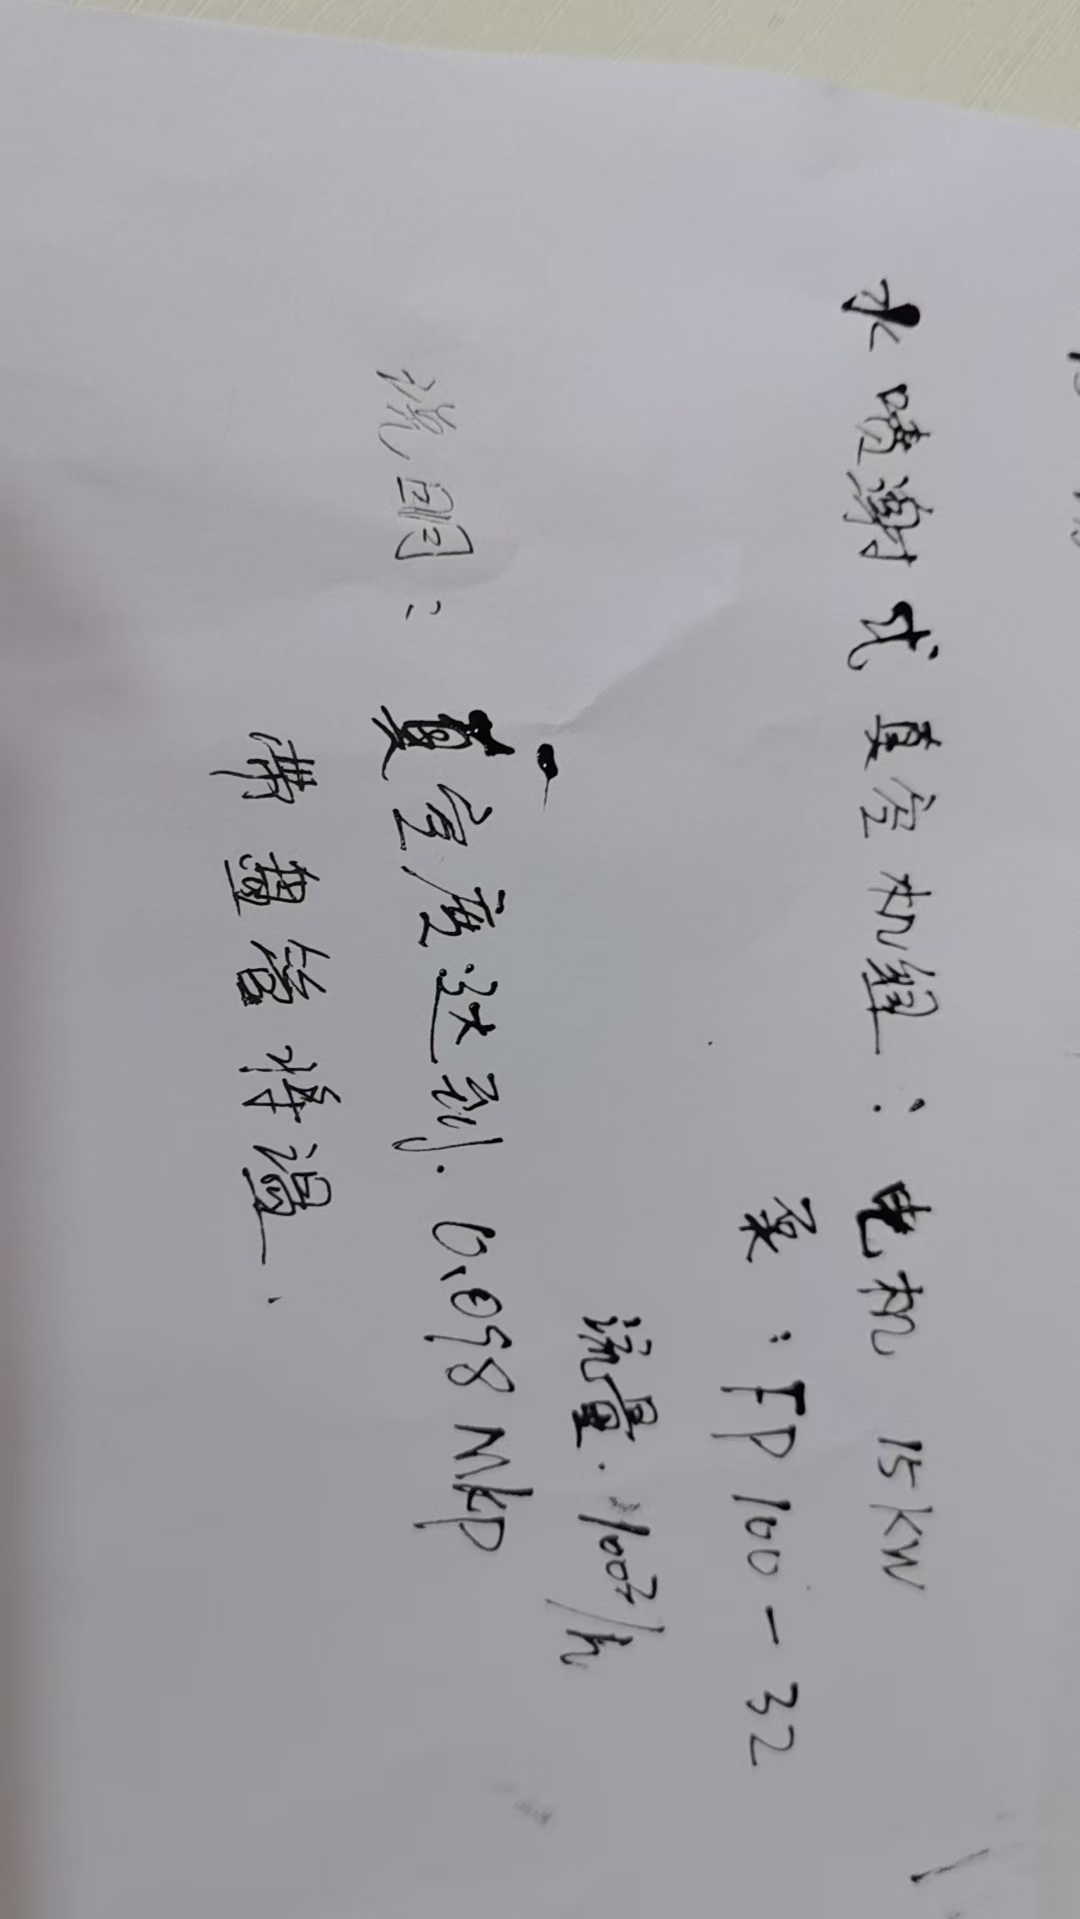 水喷射式真空机组：电机 15KW
泵：FP100-32
流量.100³/h
说明：真空度达到.0.098MKP
带盘管降温.